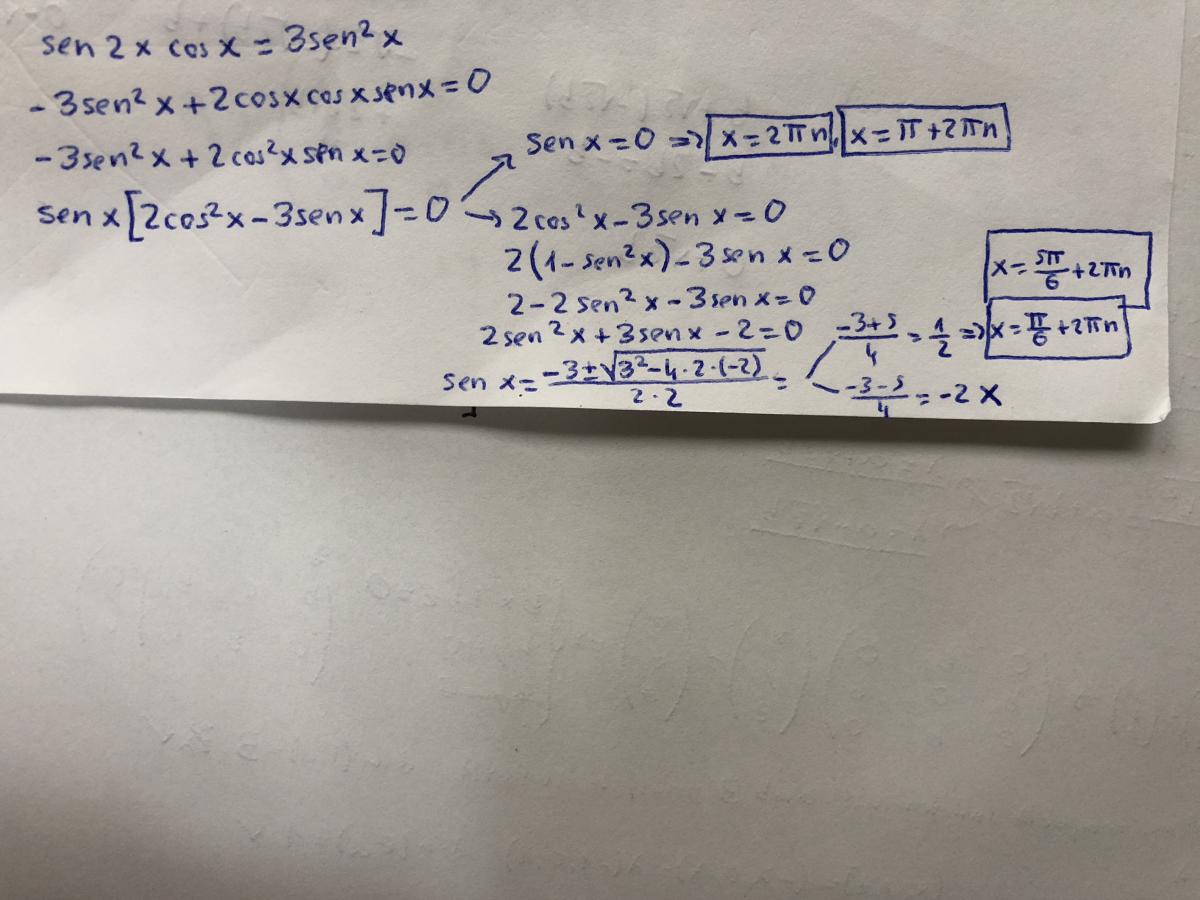 sen 2x cos x = 3sen²x
-3sen²x + 2cosxcosxsenx = 0
-3sen²x + 2cos²x sen x = 0
sen x [2cos²x - 3senx] = 0
sen x = 0 => x = 2πn, x = π + 2πn
→ 2cos²x - 3sen x = 0
2(1 - sen²x) - 3sen x = 0
2 - 2sen²x - 3senx = 0
2sen²x + 3senx - 2 = 0
sen x = (-3 ± √(3² - 4·2·(-2)))/(2·2) =
(-3+5)/4 = 1/2 => x = π/6 + 2πn
x = 5π/6 + 2πn
(-3-5)/4 = -2 X